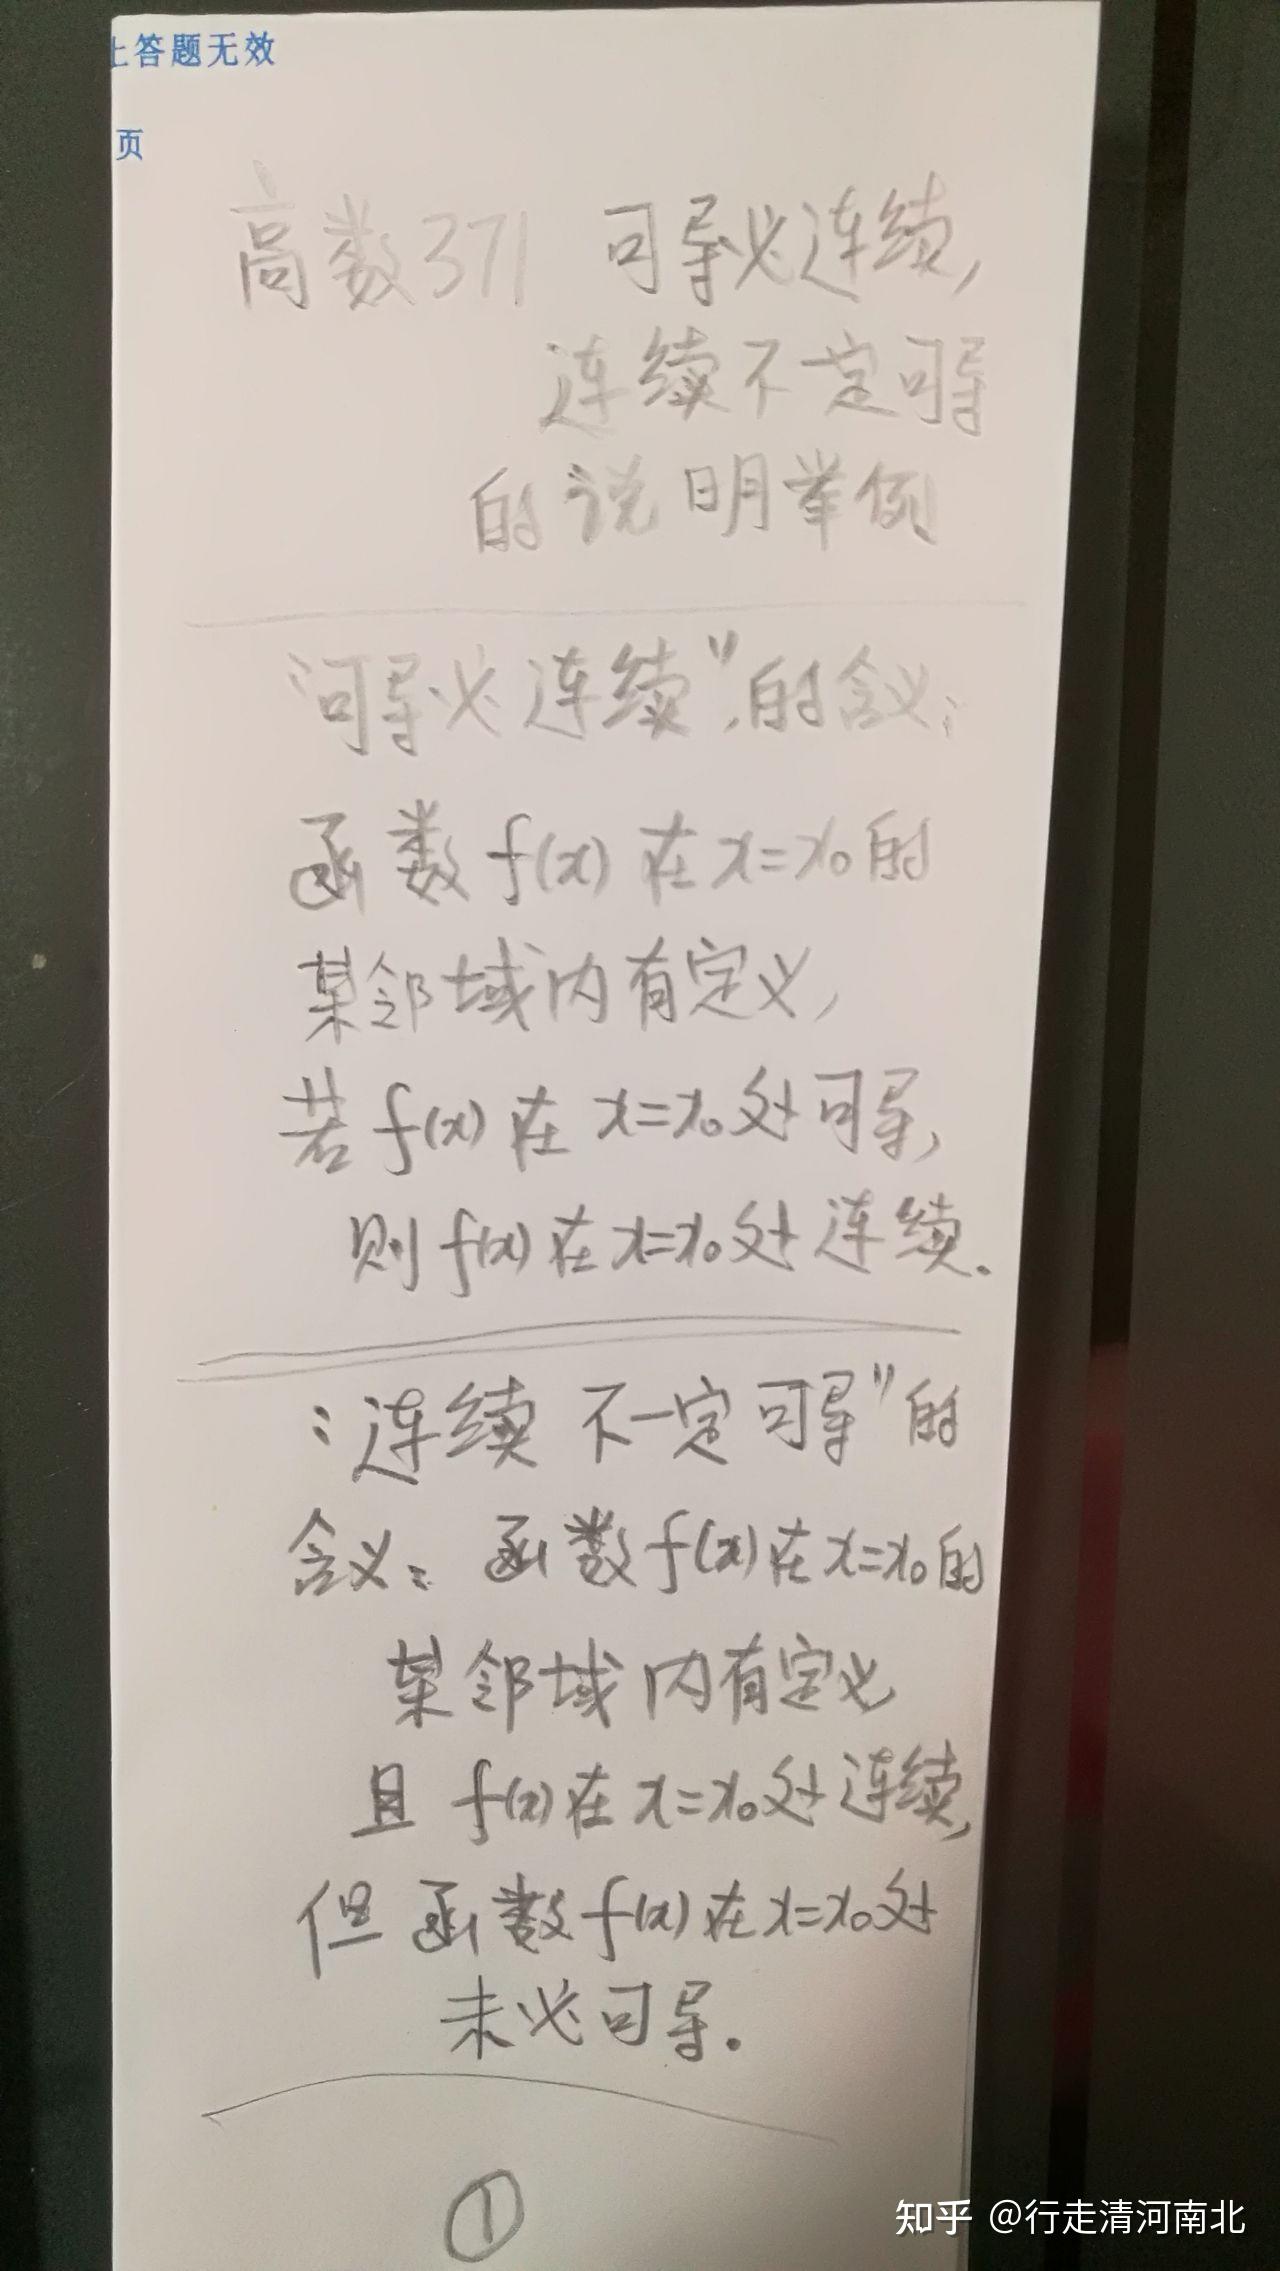 上答题无效
页
高数371 可导必连续,
连续不一定可导
的说明举例
"可导必连续",的含义:
函数f(x)在x=x₀的
某邻域内有定义,
若f(x)在x=x₀处可导,
则f(x)在x=x₀处连续.
"连续不一定可导"的
含义: 函数f(x)在x=x₀的
某邻域内有定义
且f(x)在x=x₀处连续,
但函数f(x)在x=x₀处
未必可导.
①
知乎 @行走清河南北